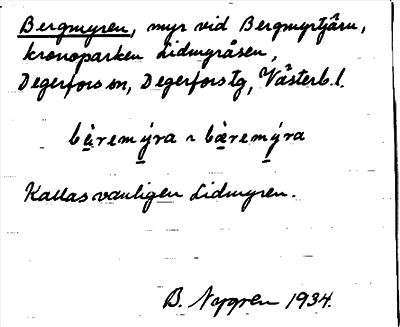 Bergmyren, myr vid Bergmyrtjärn,
kronoparken Lidmyråsen,
Degerfors sn, Degerfors tg, Västerb. l.
bæ̀remýra ~ bæ̀remýra
Kallas vanligen Lidmyren.
B. Nygren 1934.